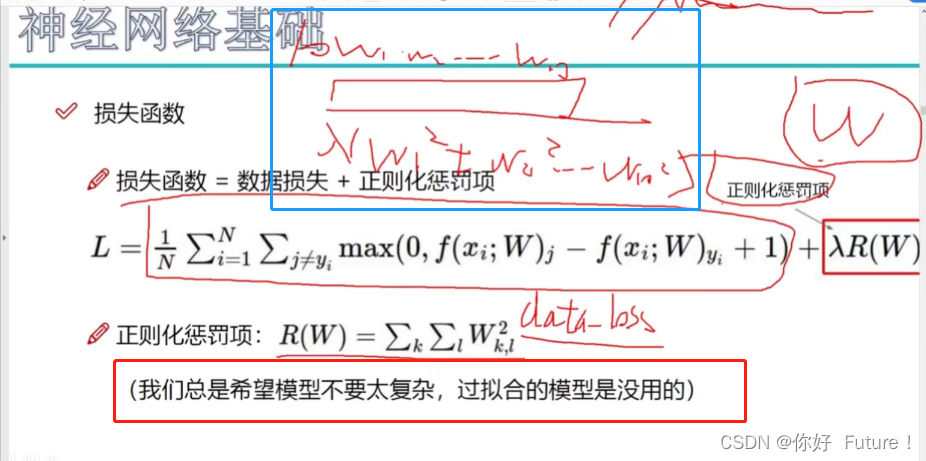 神经网络基础
W₁ W₂ ---- W₁₀
损失函数
λ(W₁² + W₂² --- W₁₀²)
W
损失函数 = 数据损失 + 正则化惩罚项
正则化惩罚项
L = \frac{1}{N} \sum_{i=1}^{N} \sum_{j≠y_i} max(0, f(x_i; W)_j − f(x_i; W)_{y_i} + 1) + λR(W)
data_loss
正则化惩罚项: R(W) = \sum_k \sum_l W_{k,l}^2
(我们总是希望模型不要太复杂,过拟合的模型是没用的)
CSDN @你好 Future !